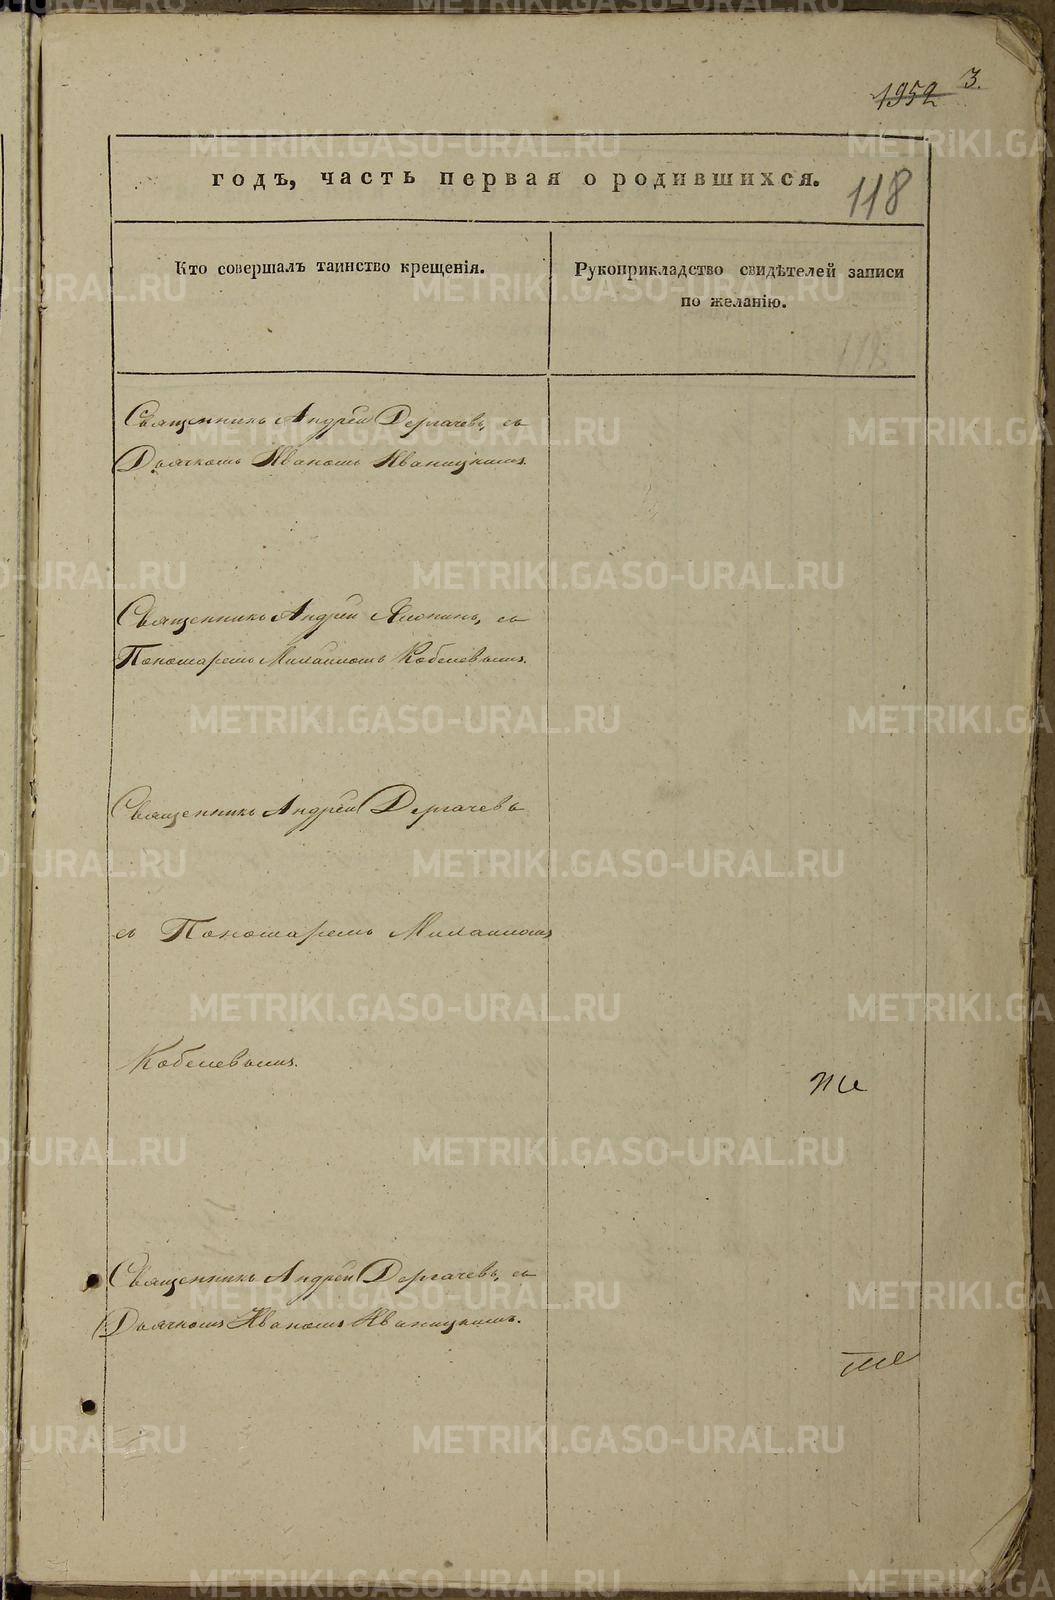 3.
1952
годъ, часть первая о родившихся.
118
Кто совершалъ таинство крещенія.
Рукоприкладство свидѣтелей записи
по желанію.
Священникъ Андрей Дергачевъ, съ
Дьячкомъ Иваномъ Иваницкимъ.
Священникъ Андрей съ
Пономаремъ Михаиломъ Кобелевымъ.
Священникъ Андрей Дергачевъ
съ Пономаремъ Михаиломъ
Кобелевымъ.
Священникъ Андрей Дергачевъ, съ
Дьячкомъ Иваномъ Иваницкимъ.
METRIKI.GASO-URAL.RU